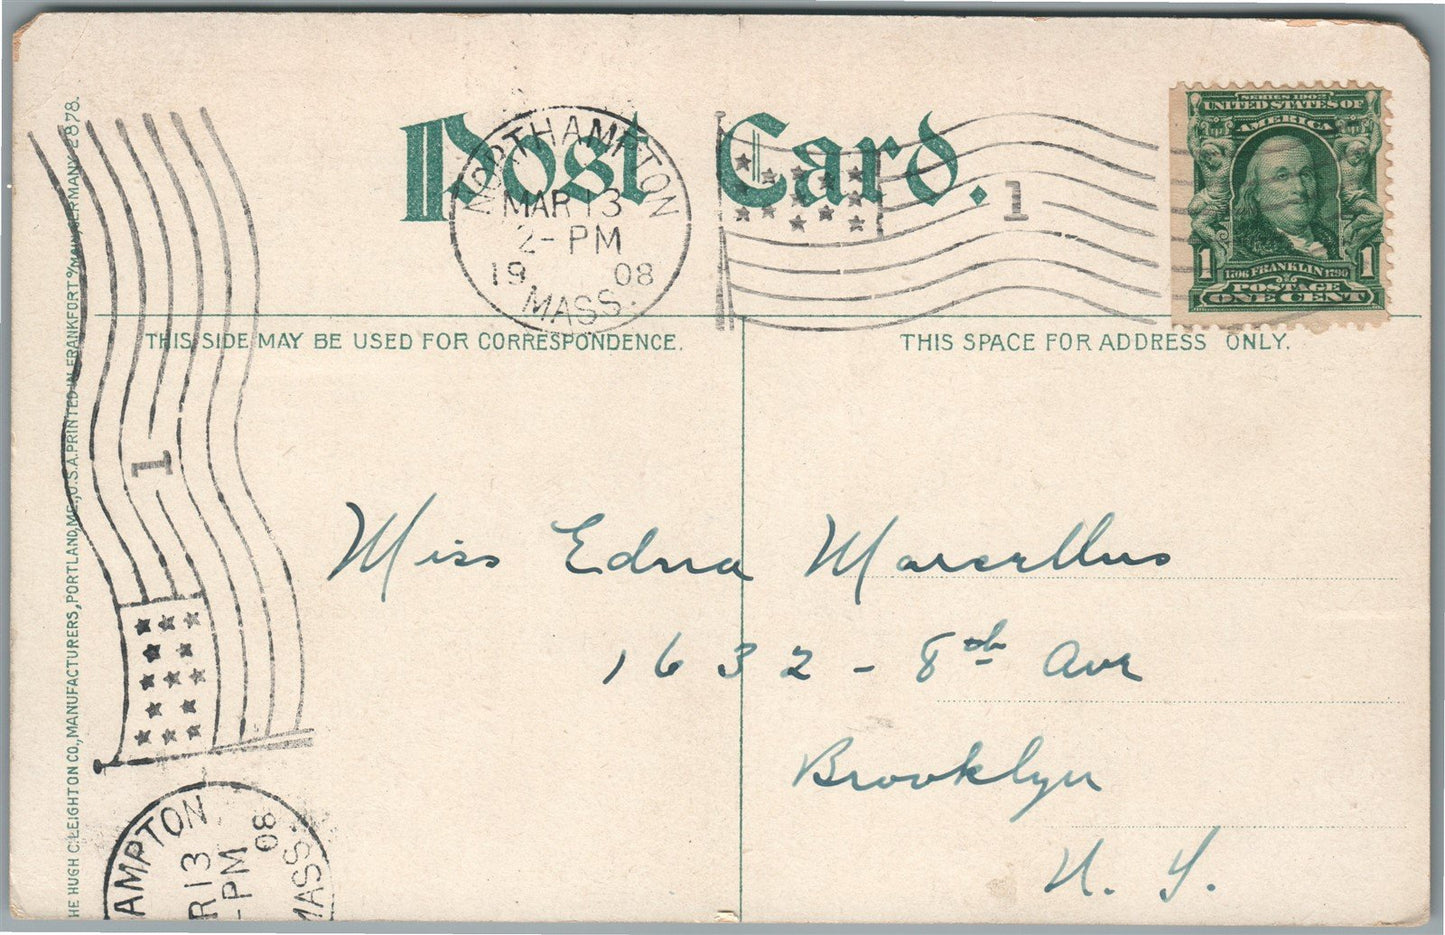 Post Card.
NORTHAMPTON
MAR 13
2-PM
19 08
MASS.
1
SERIES 1902
UNITED STATES OF
AMERICA
1 1
1706 FRANKLIN 1790
POSTAGE
ONE CENT
THIS SIDE MAY BE USED FOR CORRESPONDENCE.
THIS SPACE FOR ADDRESS ONLY.
Miss Edna Marcellus
1632 - 8th Ave
Brooklyn
N. Y.
HE HUGH C. LEIGHTON CO., MANUFACTURERS, PORTLAND, ME., U.S.A. PRINTED IN FRANKFORT o/MAIN, GERMANY 2878.
1
AMPTON
R 13
-PM
08
MASS.